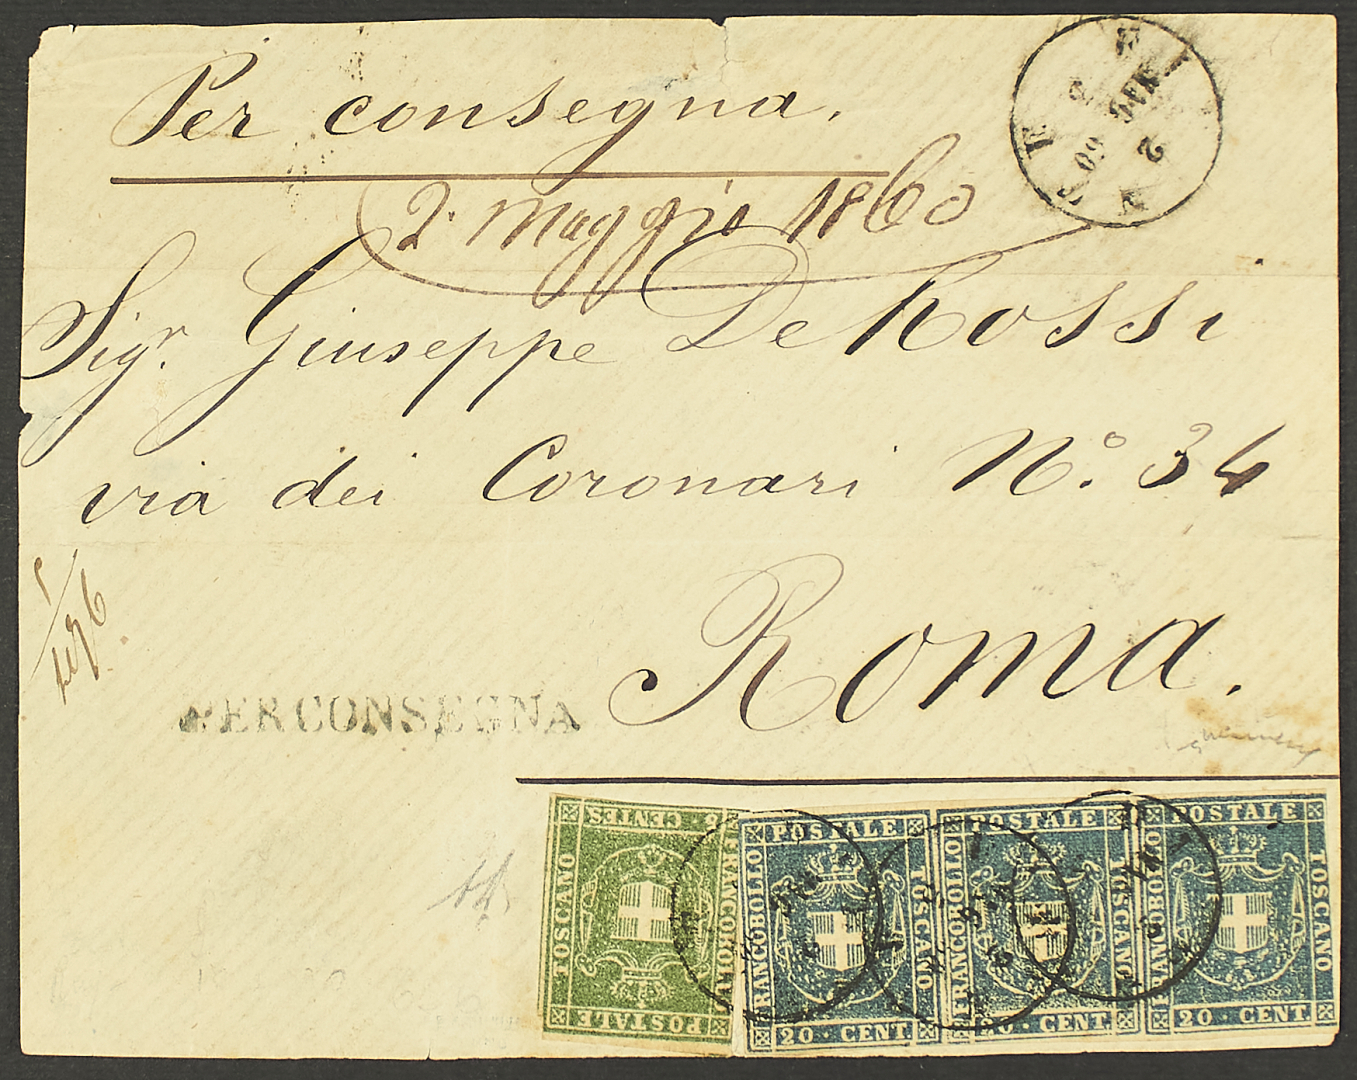 Per consegna.
2. Maggio 1860
FIRENZE
2 MAG 60
Sigr. Giuseppe De Rossi
via dei Coronari N.o 34
Roma.
PER CONSEGNA
5 CENTES
FRANCOBOLLO
POSTALE
TOSCANO
FRANCOBOLLO
POSTALE
TOSCANO
20 · CENT.
FRANCOBOLLO
POSTALE
TOSCANO
20 · CENT.
FRANCOBOLLO
POSTALE
TOSCANO
20 · CENT.